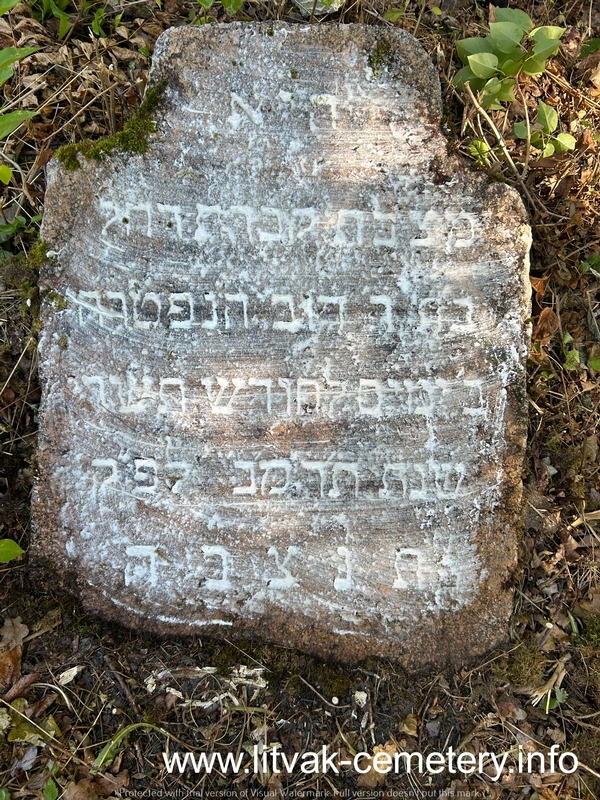 מצבת קברת רחל
בת ר דוב הנפטרה
ב ימים לחודש תשרי
שנת תרמב לפק
ת נ צ ב ה
www.litvak-cemetery.info
"Protected with trial version of Visual Watermark. Full version doesn't put this mark."